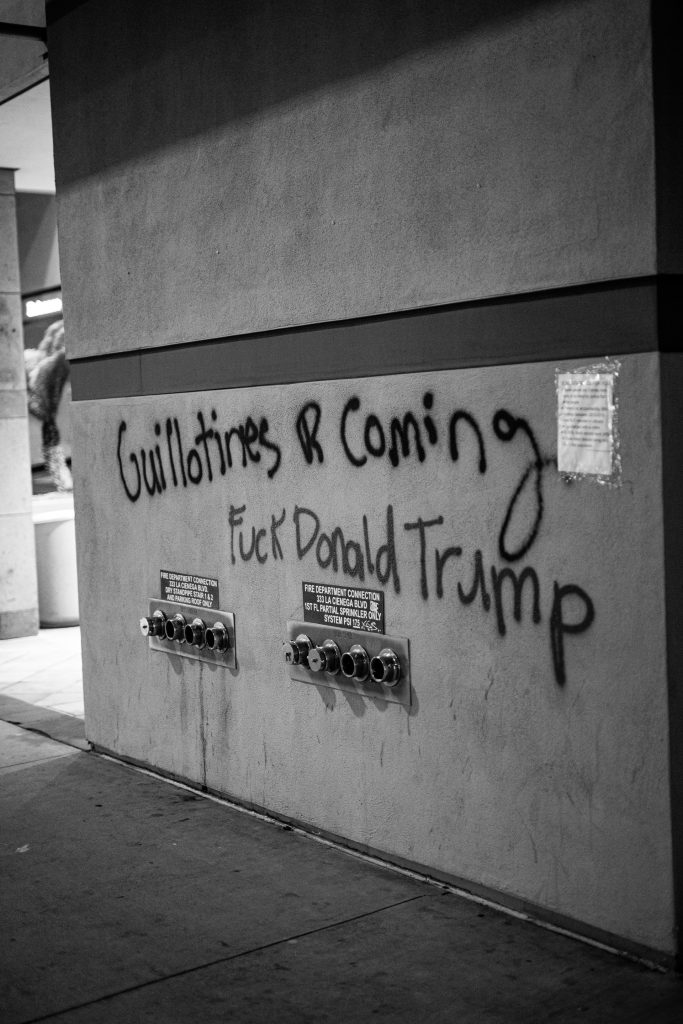 Guillotines R Coming
Fuck Donald Trump
FIRE DEPARTMENT CONNECTION
333 LA CIENEGA BLVD.
DRY STANDPIPE STAIR 1 & 2
AND PARKING ROOF ONLY
FIRE DEPARTMENT CONNECTION
333 LA CIENEGA BLVD
1ST FL PARTIAL SPRINKLER ONLY
SYSTEM PSI 175